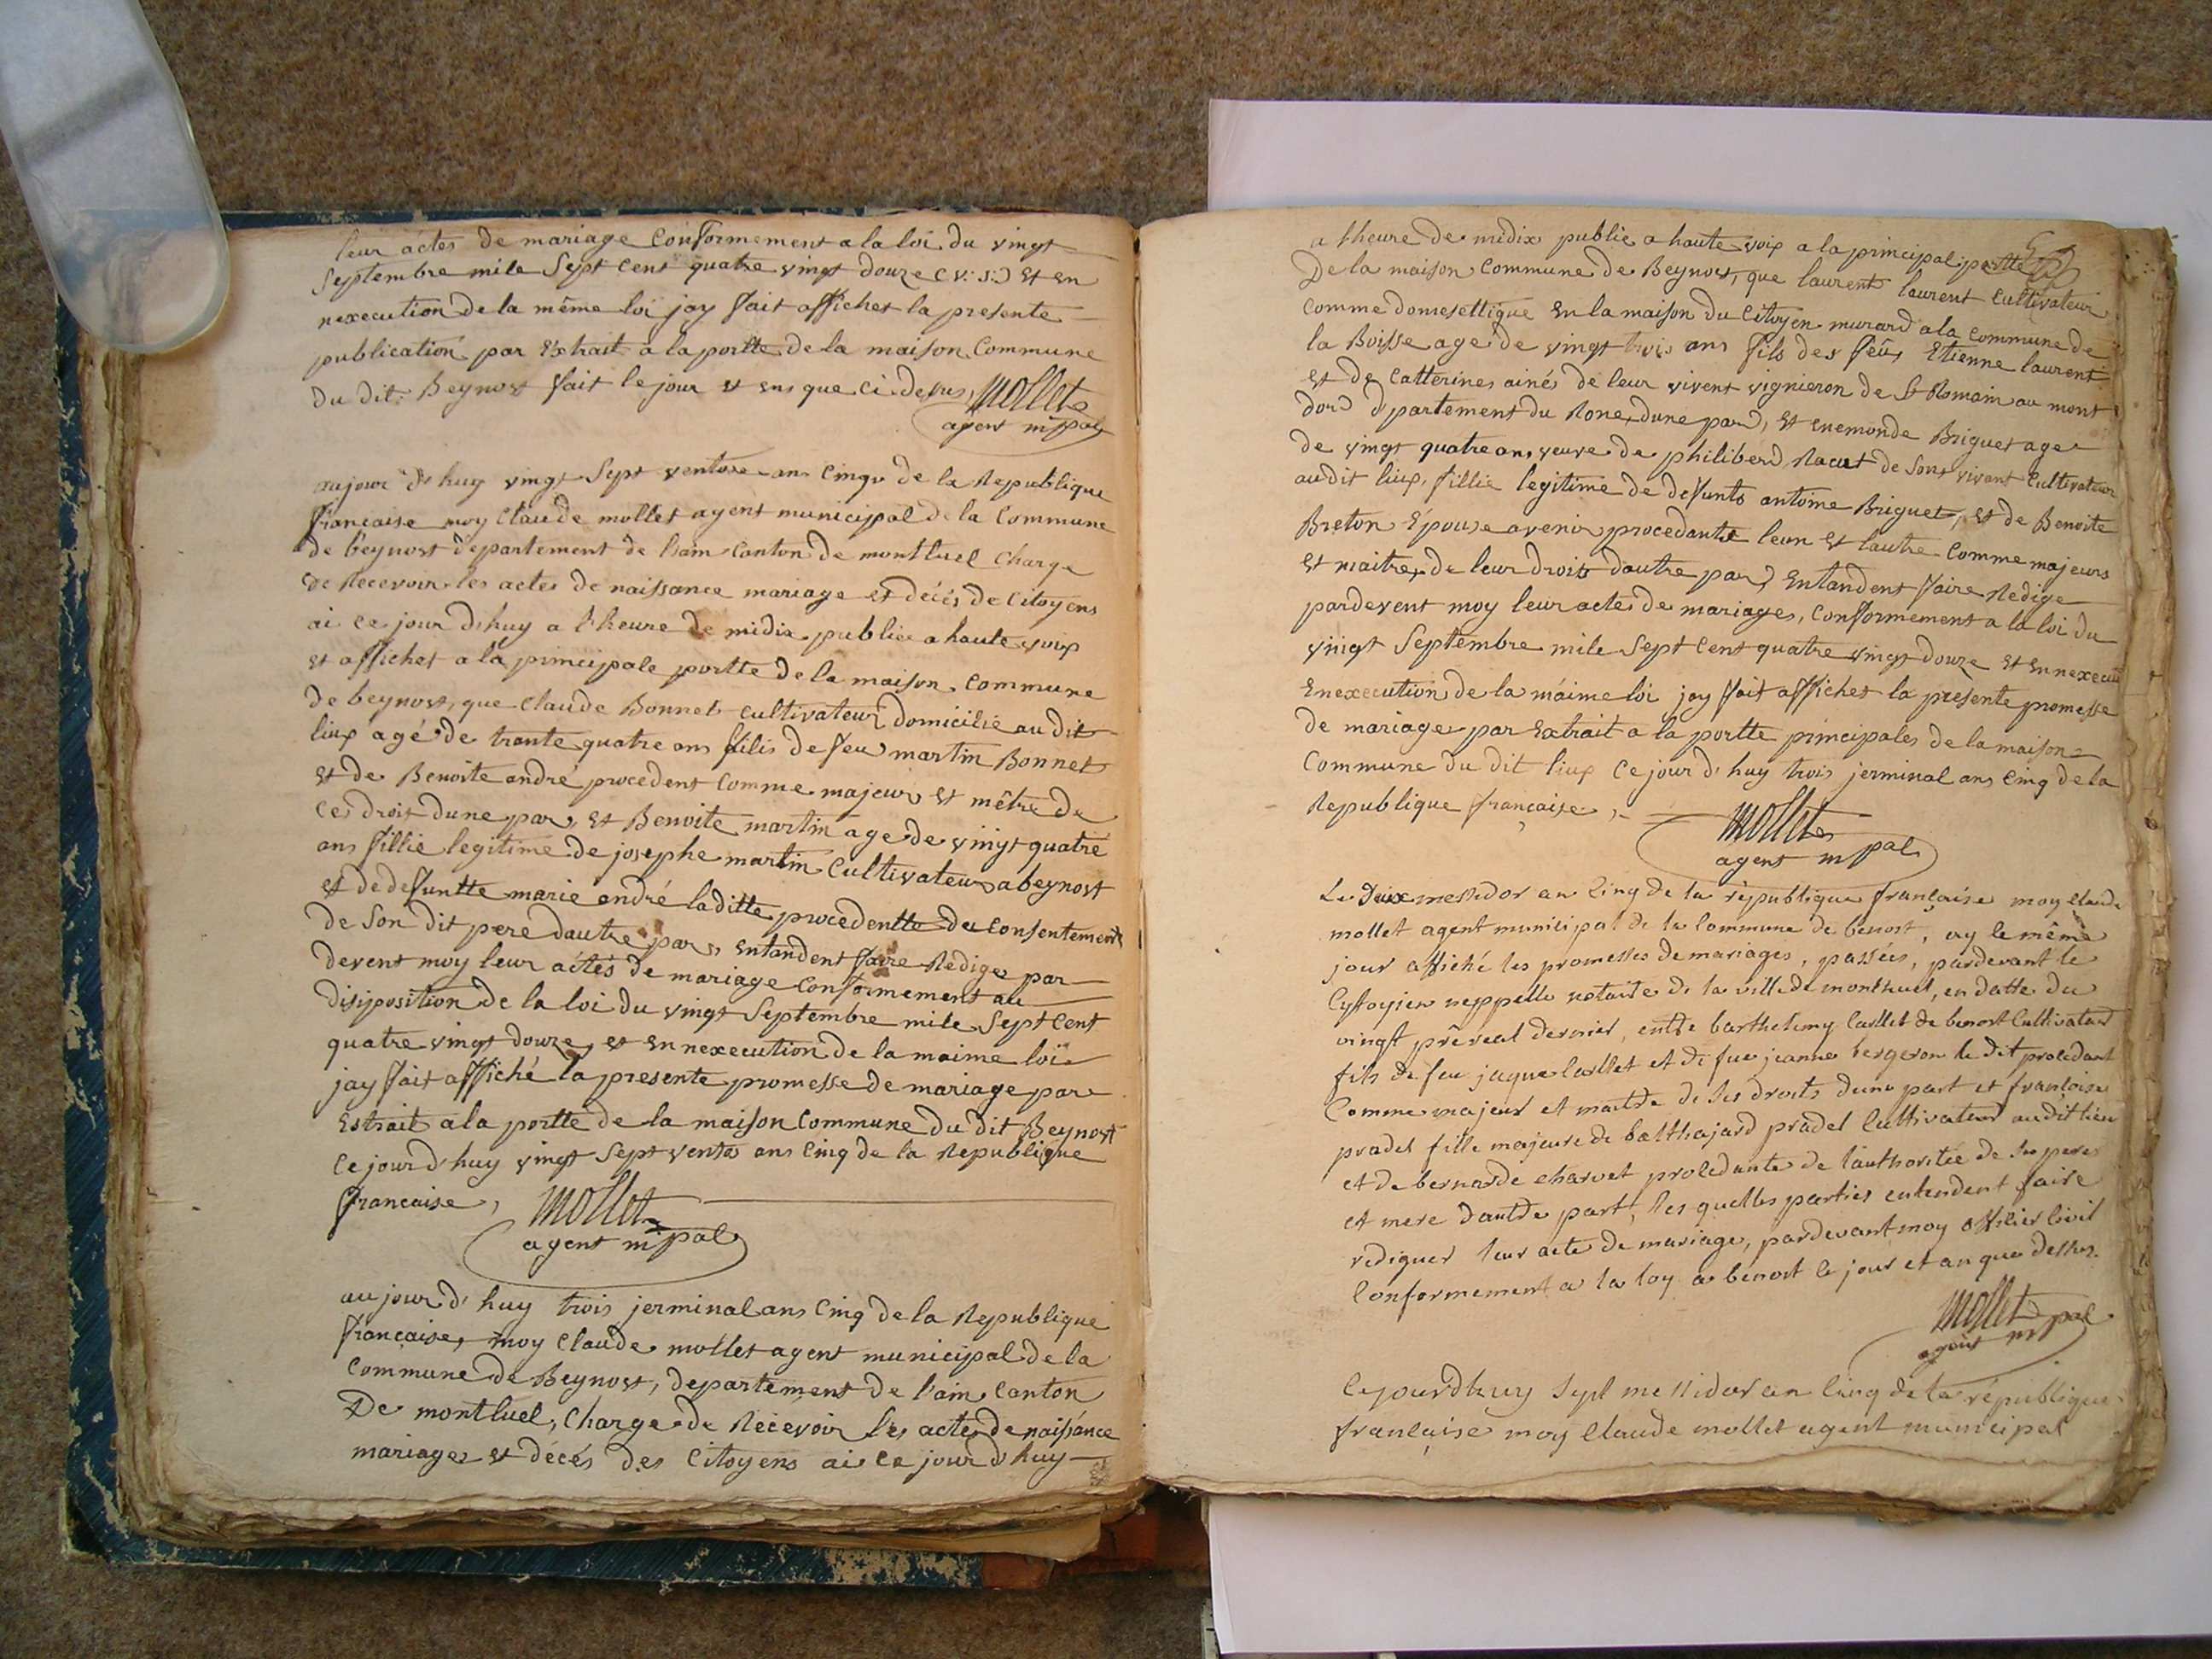 leur actes de mariage Conformement a la loi du vingt
Septembre mile Sept Cent quatre vingt douze (v: s:) Et en
nexecution de la même loi jay fait afficher la presente
publication par Extrait a la portte de la maison Commune
du dit Beynost fait le jour et ans que Ci desus, mollet
agent mpal
aujour d'huy vingt Sept ventose ans Cinqv de la Republique
francaise moy Claude mollet agent municipal de la Commune
de beynost departement de lain Canton de montluel Charge
de Recevoir les actes de naissance mariage et décés de Citoyens
ai Ce jour d'huy a l'heure de midix publiee a haute voix
et affichet a la principale portte de la maison Commune
de beynost, que Claude Bonnet Cultivateur domicilie au dit
liux agé de trante quatre ans filis de feu martin Bonnet
et de Benoite andré procedent Comme majeur et mêtre de
Ces droit dune par, et Benoite martin age de vingt quatre
ans fillie legitime de josephe martin Cultivateur a beynost
et de defuntte marie andré laditte procedentte du Consentement
de Son dit pere dautre par, entandent faire Redige par
devent moy leur actés de mariage Conformement au
disiposition de la loi du vingt Septembre mile Sept Cent
quatre vingt douze, et en nexecution de la maime loi
jay fait affiché la presente promesse de mariage par
Estrait a la portte de la maison Commune du dit Beynost
Ce jour d'huy vingt Sept vento ans Cinq de la Republique
francaise, mollet
agent mpal
aujour d'huy trois jerminal ans Cinq de la Republique
française, moy Claude mollet agent municipal de la
Commune de Beynost, departement de l'ain Canton
De montluel, Charge de Recevoir les actes de naissance
mariages et décés des Citoyens ai Ce jour d'huy
a lheure de midix publie a haute voix a la principal portte
De la maison Commune de Beynost, que laurent laurent Cultivateur
Comme domesettique en la maison du Citoyen murard a la Commune de
la Boisse age de vingt trois ans fils des feû Etienne laurent
et de Catterines ainés de leur vivent vignieron de St Romain au mont
dord dpartement du Rone, dune par, et enemonde Briguet age
de vingt quatre ans veuve de philiberd Racut de Sont vivant Cultivateur
audit liux, fillie legitime de defunts antoine Briguet, et de Benoite
Breton Epouse avenir procedante leun et lautre Comme majeurs
et maitre de leur droits dautre par, Entandent faire Redige
pardevent moy leur actes de mariages, Conformement a la loi du
vingt Septembre mile Sept Cent quatre vingt douze et en nexecu
Enexecution de la maime loi jay fait affichet la presente promesse
de mariage par Extrait a la portte principales de la maison
Commune du dit liux Ce jour d'huy trois jerminal ans Cinq de la
Republique française, mollet
agent mpal
Le messidor an Cinq de la république française moy Claude
mollet agent municipal de la Commune de benost, ay le même
jour affiché les promesses de mariages, passées, pardevant le
Cyttoyien neppelle notaire de la ville de montluel, en datte du
vingt prêreal dernier, entre barthelemy Caillet de benost Cultivateur
fils de feu jaque Caillet et de fue jeanne bergeron le dit procédant
Comme majeur et maitre de ses droits dune part et françoise
pradel fille majeure de balthajard pradel Cultivateur au dit lieu
et de bernarde charvet procedante de l'authoritée de ses pere
et mere dautre part, les quelles parties entendent faire
rediguer leur acte de mariage, pardevant moy officier Civil
Conformement a la loy a benost le jour et an que dessus.
mollet
agent mpal
Cejourdhuy Sept messidor an Cinq de la république
française moy Claude mollet agent municipal